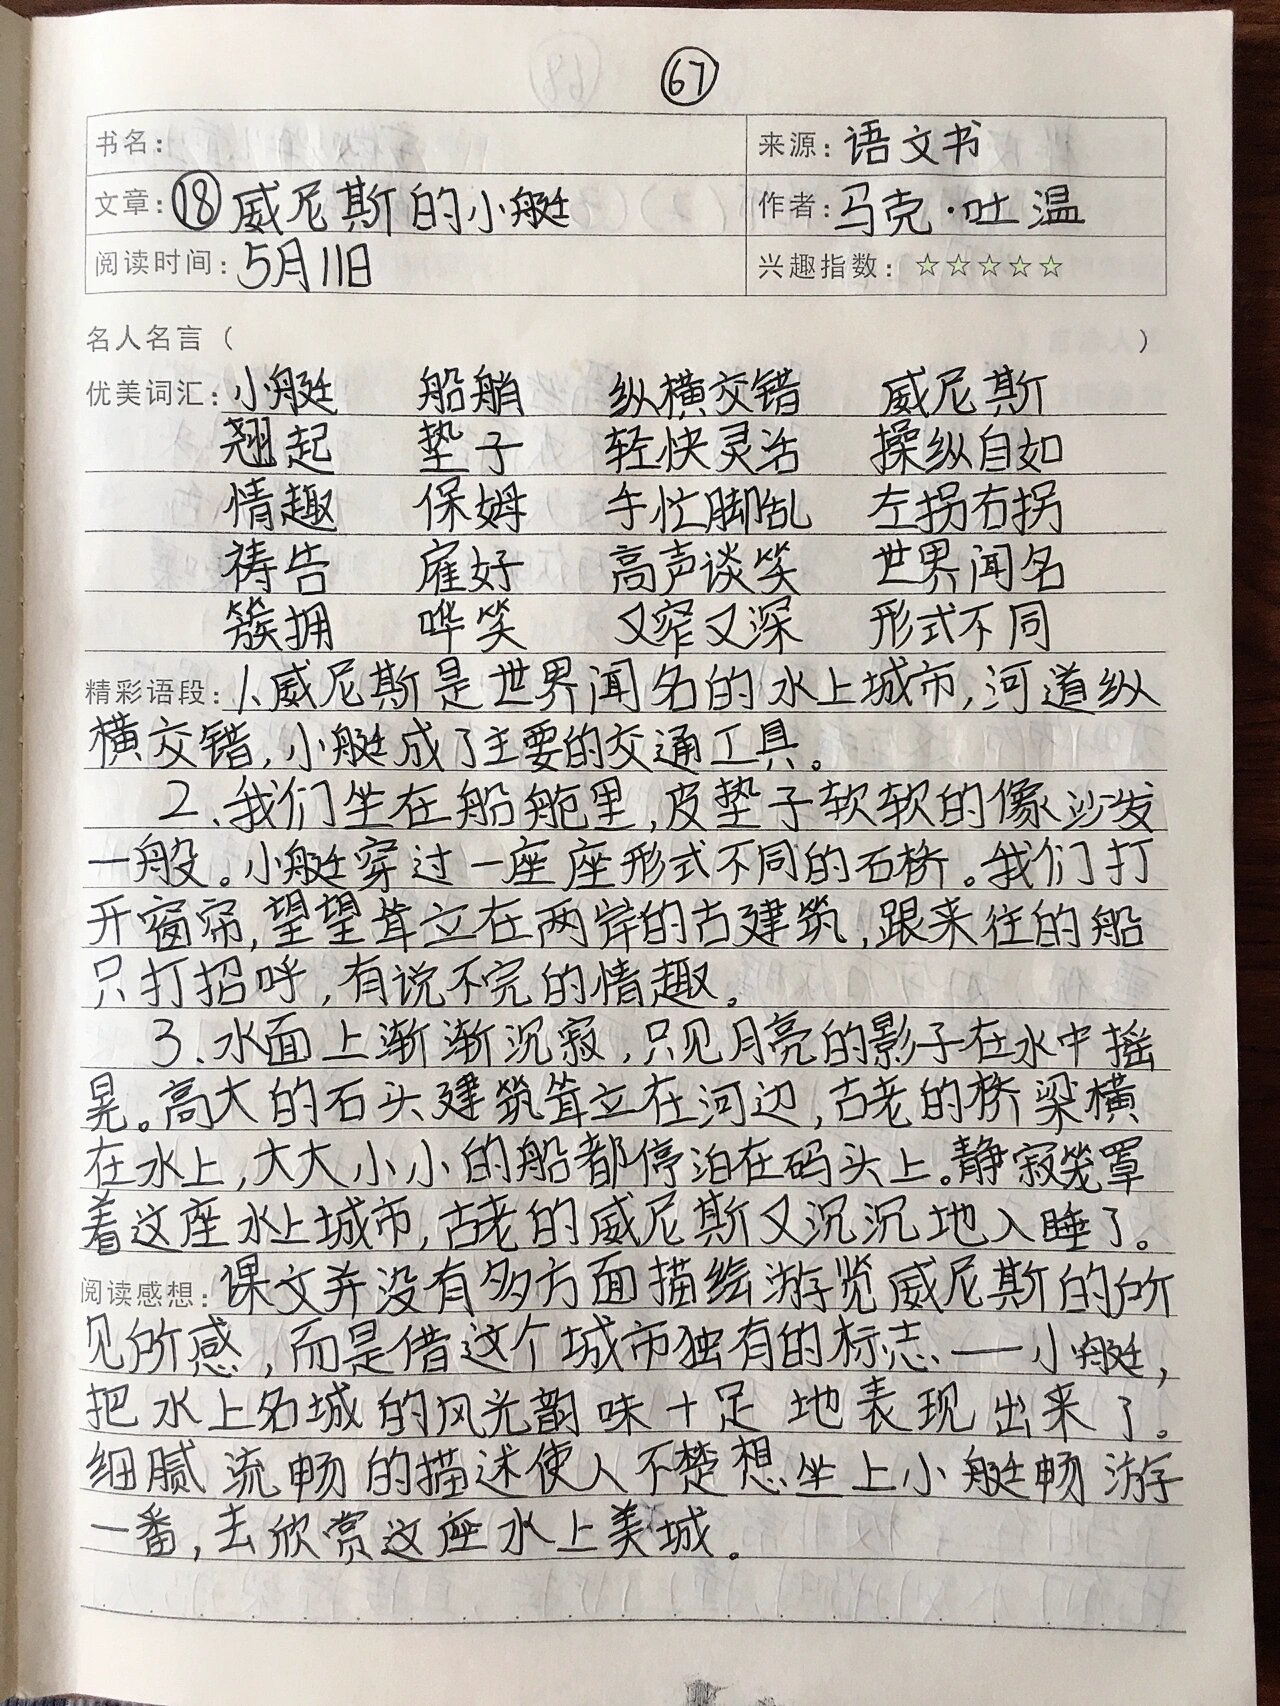 67
书名： 来源：语文书
文章：⑱威尼斯的小艇 作者：马克·吐温
阅读时间：5月11日 兴趣指数：☆☆☆☆☆
名人名言（ ）
优美词汇：小艇 船艄 纵横交错 威尼斯
翘起 垫子 轻快灵活 操纵自如
情趣 保姆 手忙脚乱 左拐右拐
祷告 雇好 高声谈笑 世界闻名
簇拥 哗笑 又窄又深 形式不同
精彩语段：1、威尼斯是世界闻名的水上城市，河道纵
横交错，小艇成了主要的交通工具。
2、我们坐在船舱里，皮垫子软软的像沙发
一般。小艇穿过一座座形式不同的石桥。我们打
开窗帘，望望耸立在两岸的古建筑，跟来往的船
只打招呼，有说不完的情趣。
3、水面上渐渐沉寂，只见月亮的影子在水中摇
晃。高大的石头建筑耸立在河边，古老的桥梁横
在水上，大大小小的船都停泊在码头上。静寂笼罩
着这座水上城市，古老的威尼斯又沉沉地入睡了。
阅读感想：课文并没有多方面描绘游览威尼斯的所
见所感，而是借这个城市独有的标志——小艇，
把水上名城的风光韵味十足地表现出来了。
细腻流畅的描述使人不楚想坐上小艇畅游
一番，去欣赏这座水上美城。